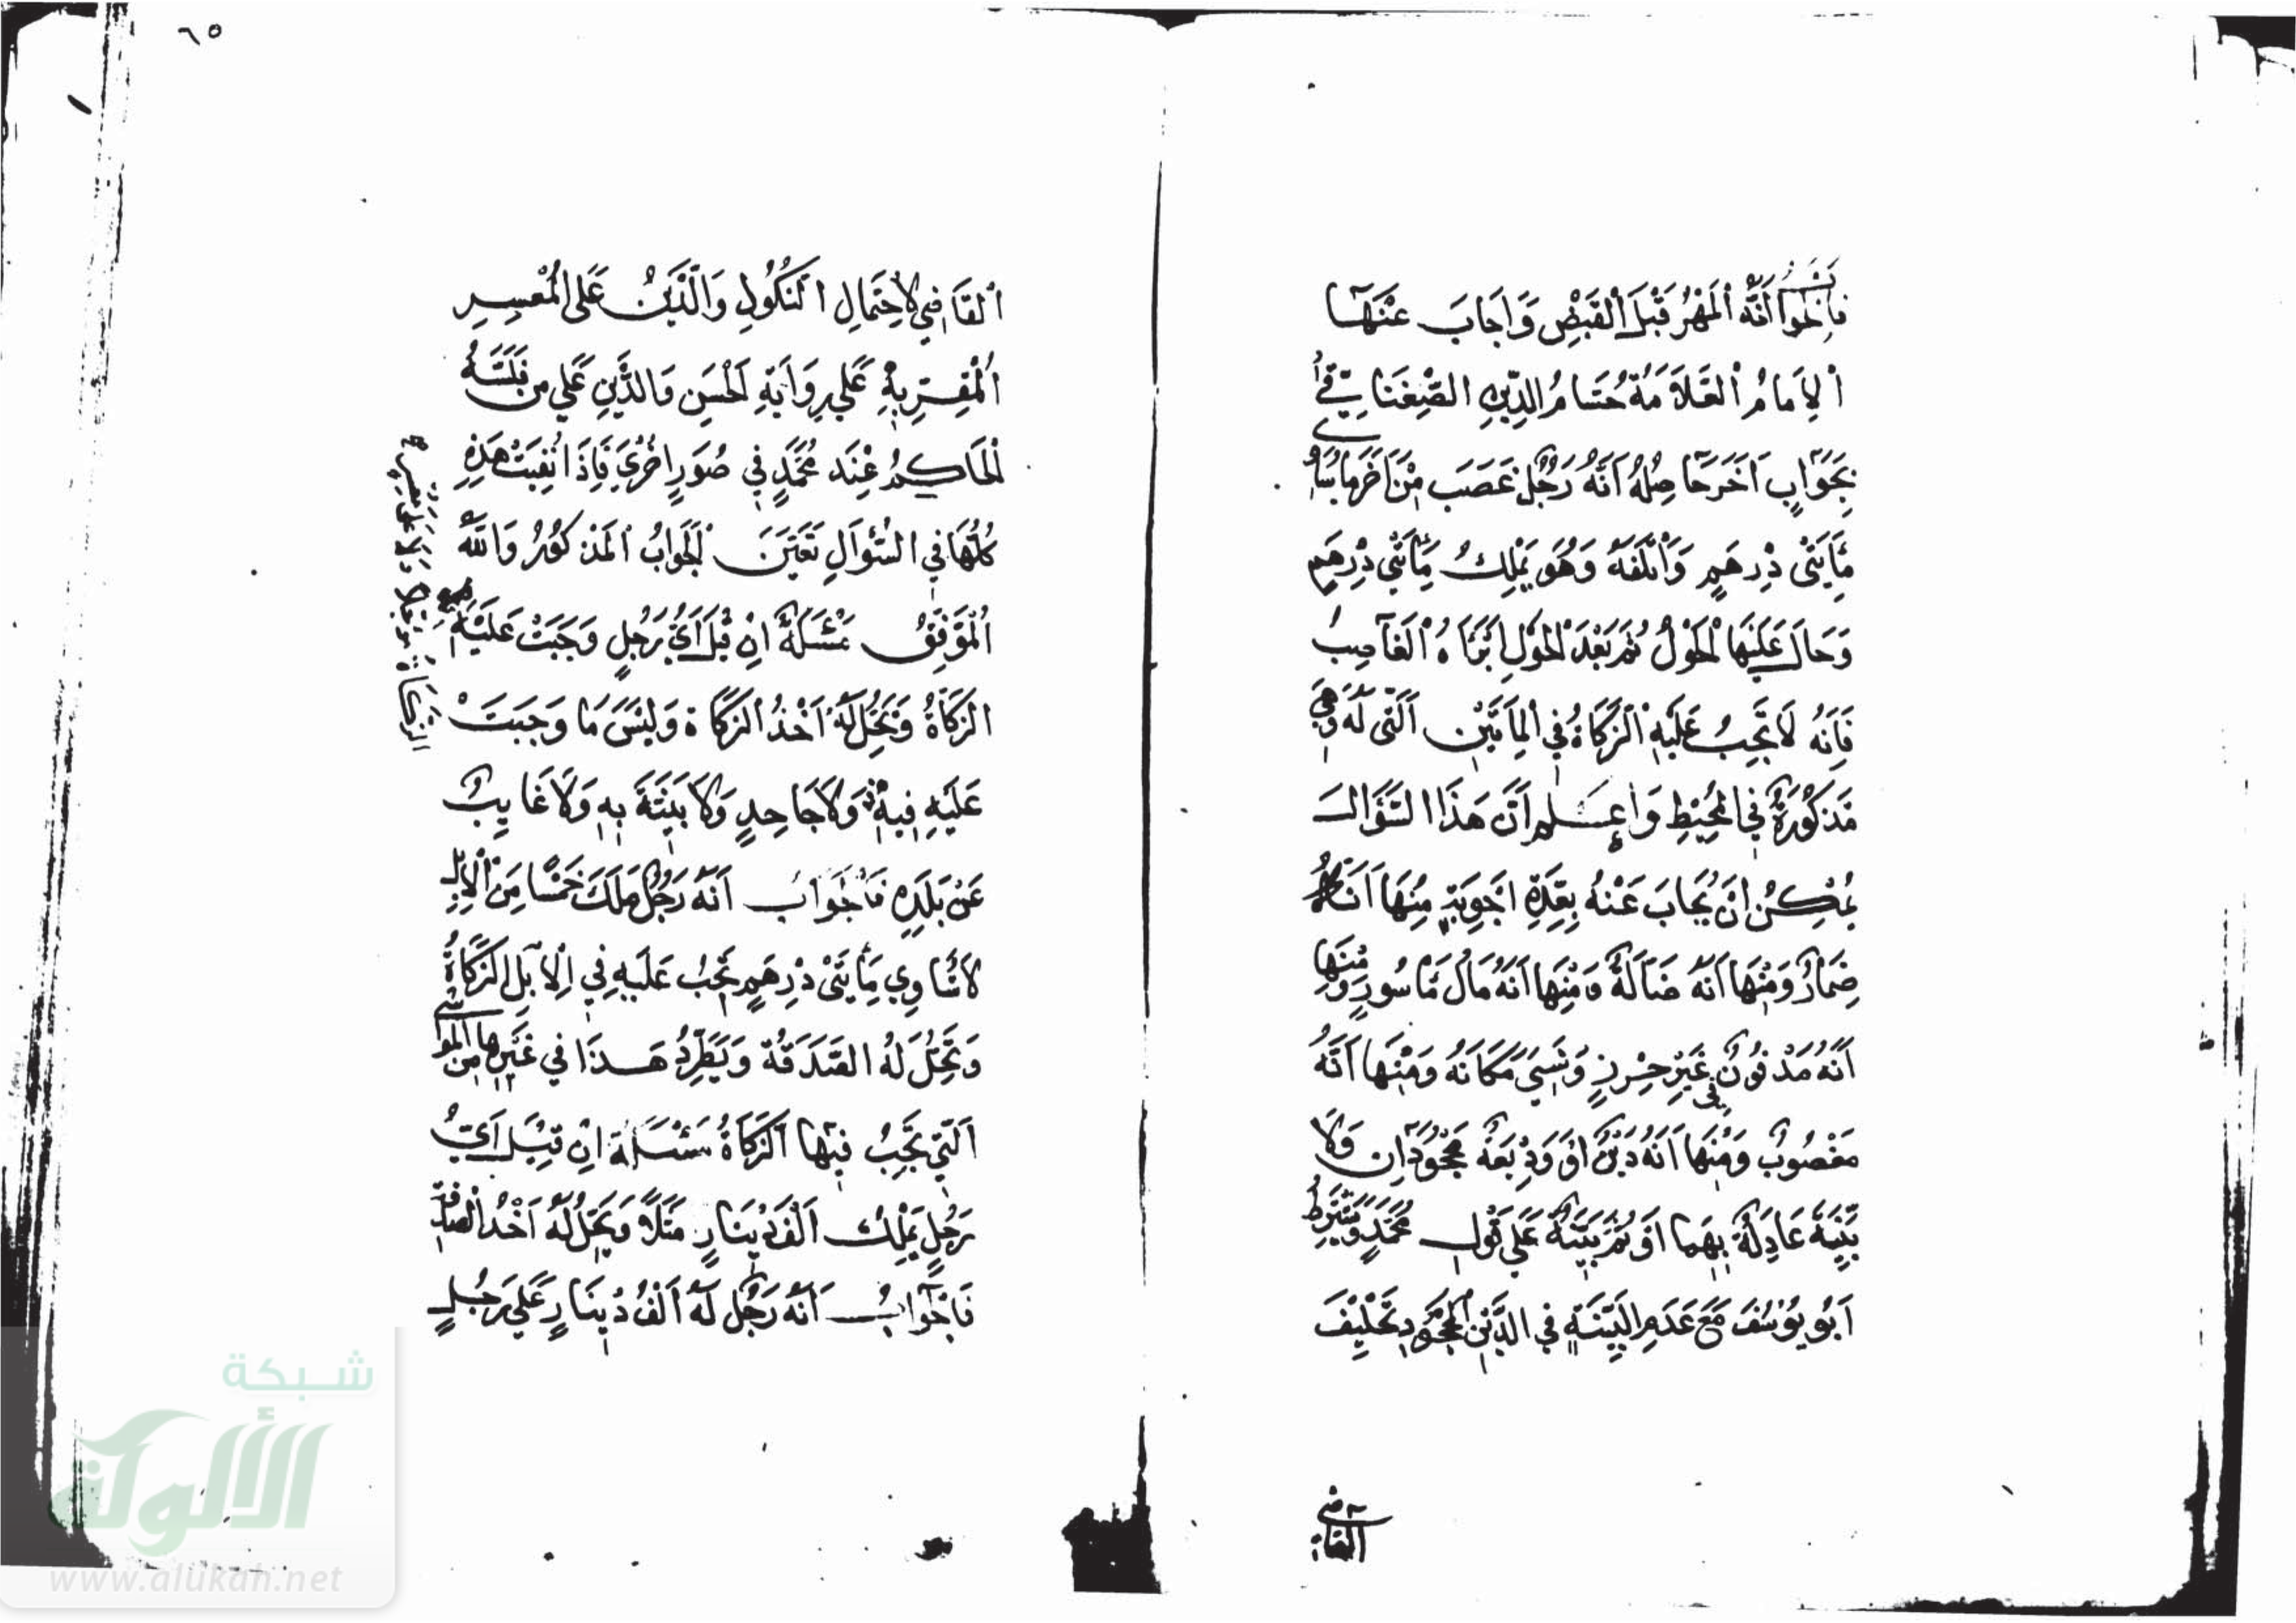 فالجواب أنه المهر قبل القبض وأجاب عنها
الإمام العلامة حسام الدين الصغناقي
بجواب آخر حاصله أنه رجل غصب من آخر ما يساوي
مأيتي درهم وأتلفه وهو يملك مأيتي درهم
وحال عليها الحول ثم بعد الحول أبرأه الغاصب
فإنه لا تجب عليه الزكاة في المأتين التي له وهي
مذكورة في المحيط واعلم أن هذا السؤال
يمكن أن يجاب عنه بعدة أجوبة منها أنه
ضمار ومنها أنه ضآلة ومنها أنه مال مأسور ومنها
أنه مدفون في غير حرز ونسي مكانه ومنها أنه
مغصوب ومنها أنه دين أو وديعة مجحودان ولا
بينة عادلة بهما أو ثم بينة على قول محمد ويشترط
أبو يوسف مع عدم البينة في الدين المجحود تحليف
القاضي
٦٥
القاضي لاحتمال النكول والدين على المعسر
المقر به على رواية الحسن والدين على من فلسه
الحاكم عند محمد في صور أخرى فإذا نفيت هذه
كلها في السؤال تعين الجواب المذكور والله
الموفق مسئلة إن قيل أي رجل وجبت عليه
الزكاة وتحل له أخذ الزكاة وليس ما وجبت
عليه فيه ولا جاحد ولا بينة به ولا غايب
عن بلده فالجواب أنه رجل ملك خمسا من الإبل
لا تساوي مأيتي درهم تجب عليه في الإبل الزكاة
وتحل له الصدقة ويطرد هذا في غيرها من المواشي
التي تجب فيها الزكاة مسئلة إن قيل أي
رجل يملك ألف دينار مثلا ويحل له أخذ الصدقة
فالجواب أنه رجل له ألف دينار على رجل
شبكة
الألوكة
www.alukah.net